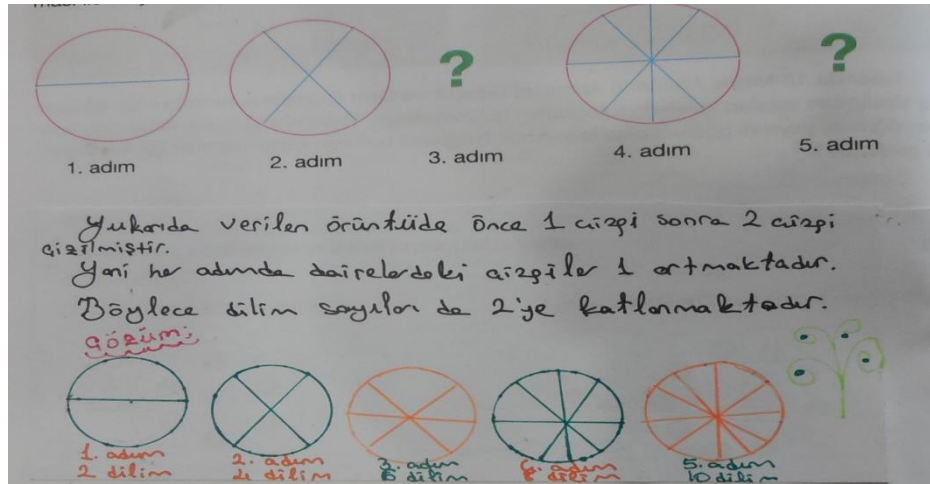 ? ?
1. adım 2. adım 3. adım 4. adım 5. adım
Yukarıda verilen örüntüde önce 1 çizgi sonra 2 çizgi
çizilmiştir.
Yani her adımda dairelerdeki çizgiler 1 artmaktadır.
Böylece dilim sayıları da 2'ye katlanmaktadır.
çözüm:
1. adım 2. adım 3. adım 4. adım 5. adım
2 dilim 4 dilim 6 dilim 8 dilim 10 dilim